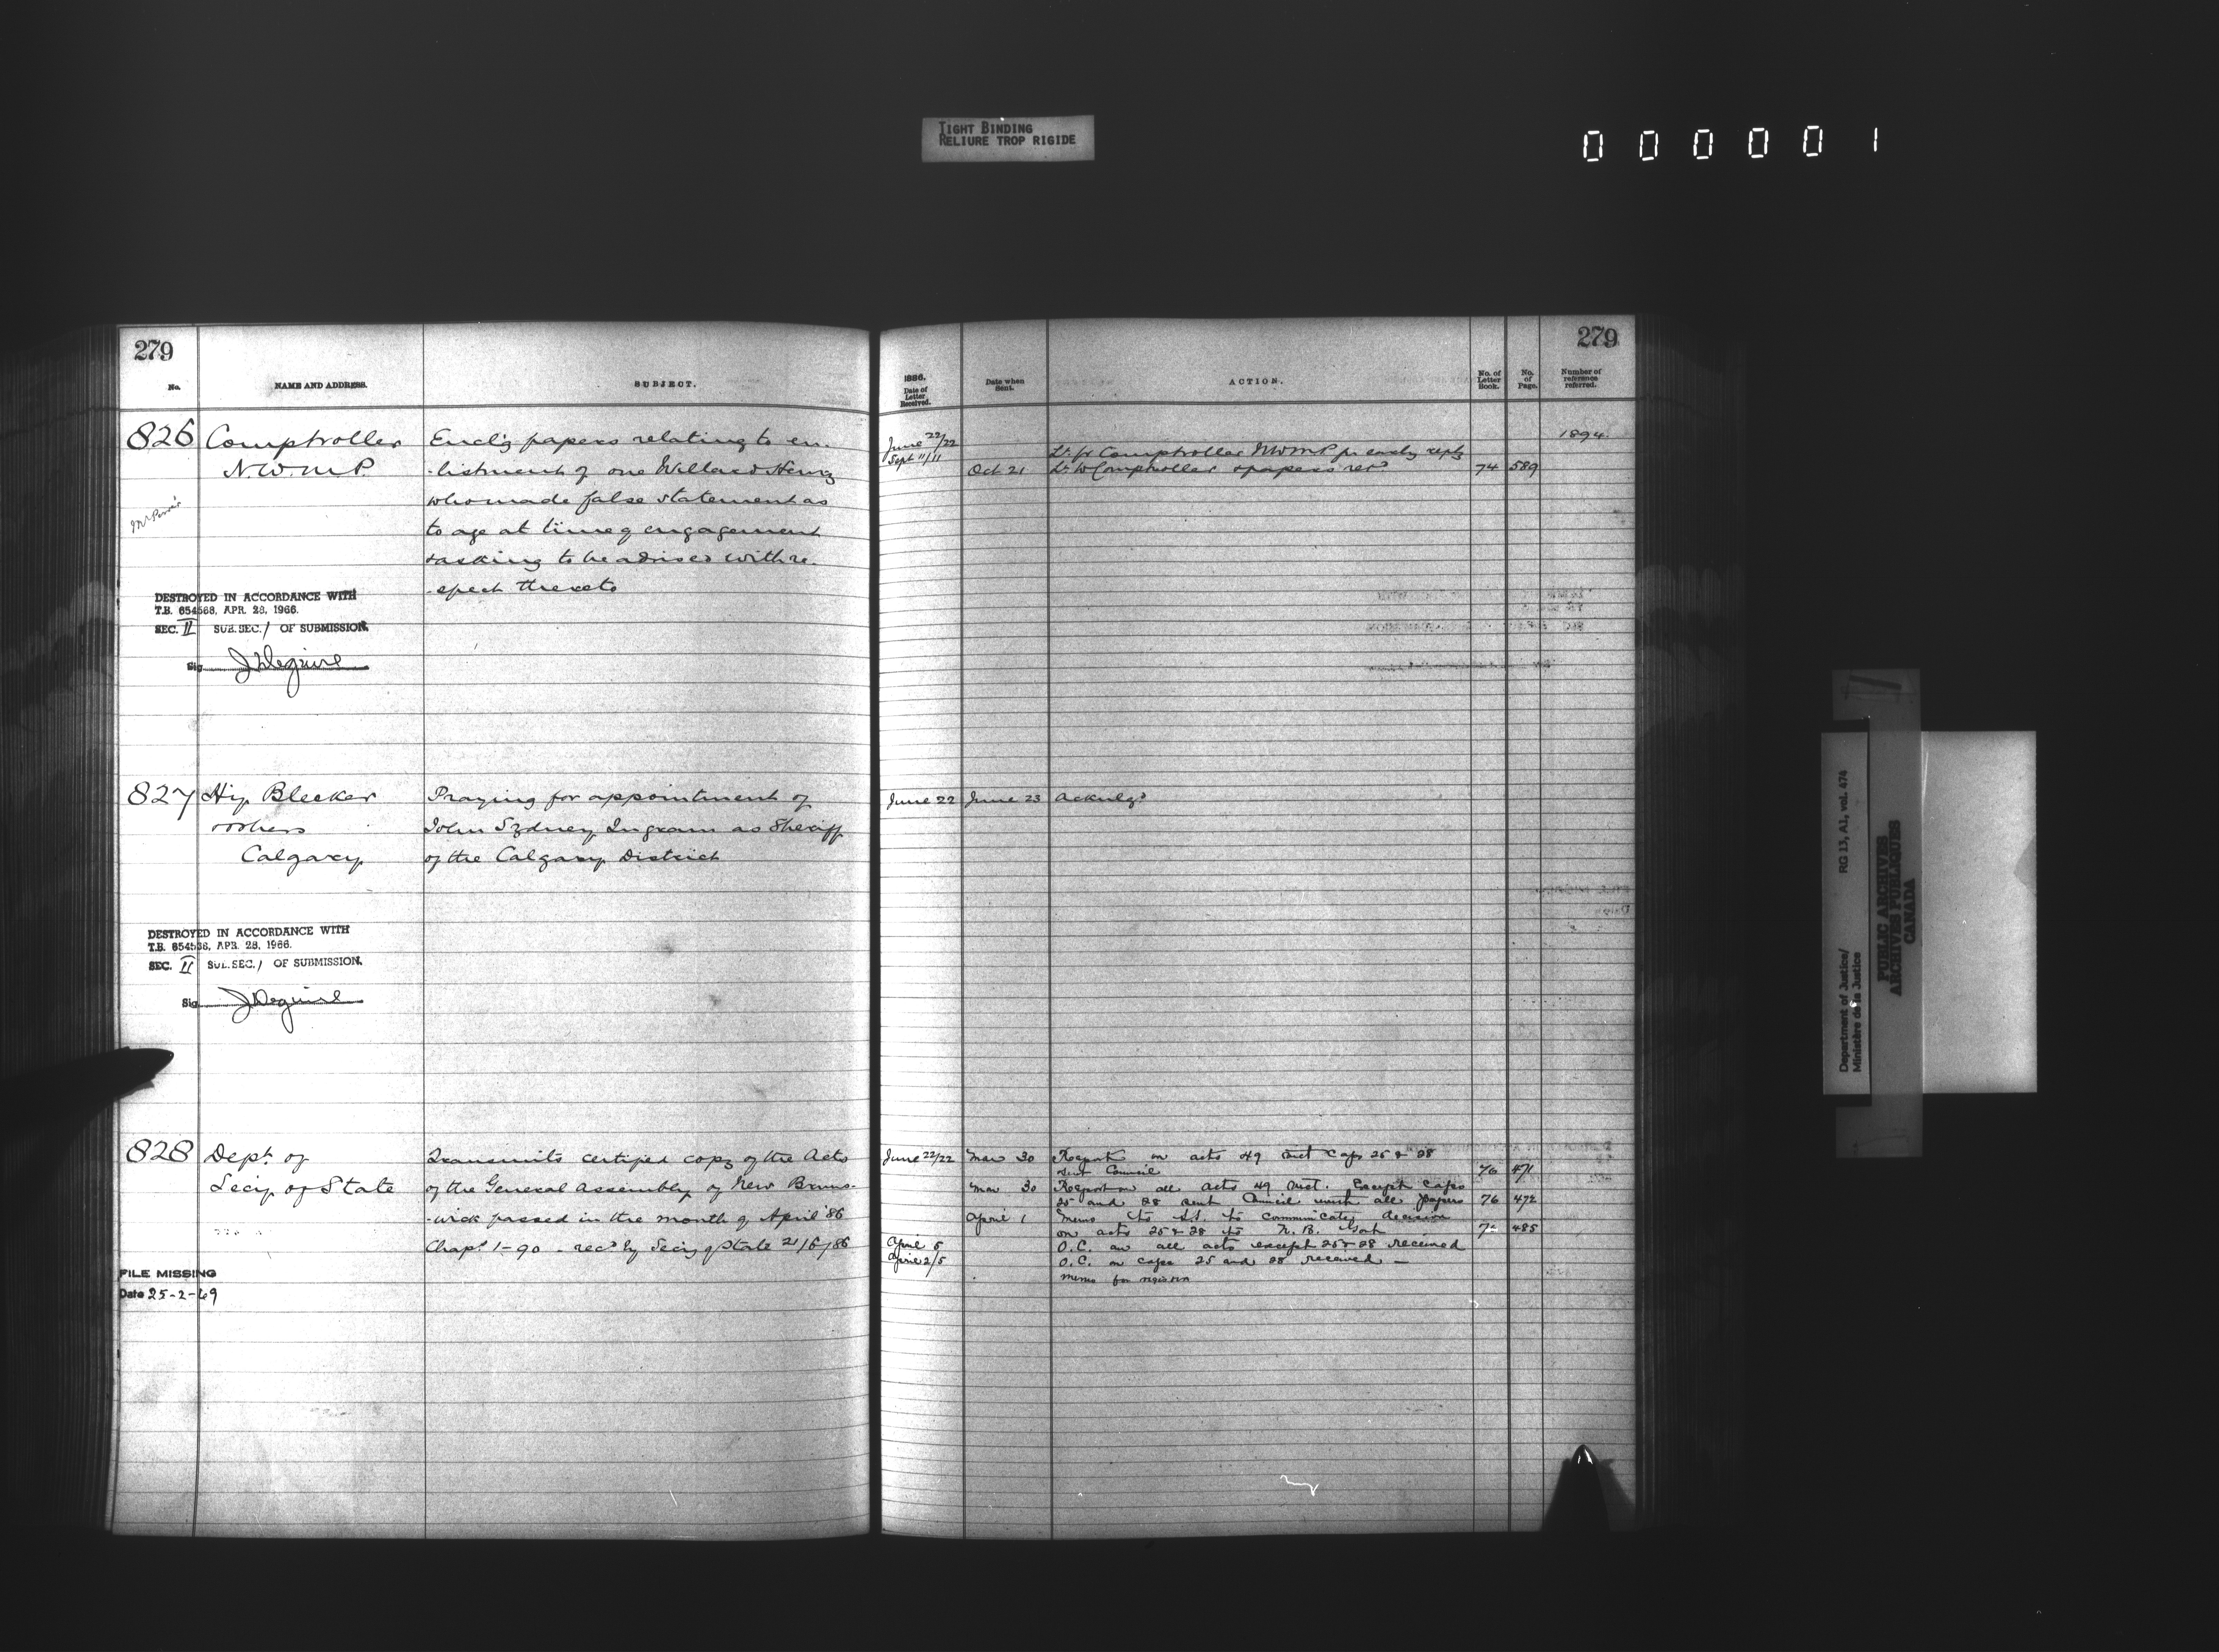 TIGHT BINDING
RELIURE TROP RIGIDE
000001
279
No.
NAME AND ADDRESS.
SUBJECT.
826
Comptroller
N.W.M.P.
Encl'g papers relating to en-
-listment of one Willard Henry
who made false statement as
to age at time of engagement
& asking to be advised with re-
-spect thereto
DESTROYED IN ACCORDANCE WITH
T.B. 654568, APR. 28, 1966.
SEC. II SUB.SEC. / OF SUBMISSION.
Sig. J Deguire
827
Hy. Bleeker
& others
Calgary
Praying for appointment of
John Sydney Ingram as Sheriff
of the Calgary District
DESTROYED IN ACCORDANCE WITH
T.B. 654568, APR. 28, 1966.
SEC. II SUB.SEC. / OF SUBMISSION.
Sig. J Deguire
828
Dept. of
Secy of State
Transmits certified copy of the Acts
of the General Assembly of New Bruns-
-wick passed in the month of April '86
Chapt 1-90 - recd by Secy of State 21/6/86
FILE MISSING
Date 25-2-69
279
1886.
Date of Letter Received.
Date when Sent.
ACTION.
No. of Letter Book.
No. of Page.
Number of reference referred.
June 22/22
1894.
Sept 11/11
Lr. fr Comptroller NWMP for early reply
Oct 21
Lr. to Comptroller & papers retd
74 589
June 22
June 23
Acknlgd
June 22/22
Mar 30
Report on acts 49 Vict Caps 25 & 28
sent Council
76 471
Mar 30
Report on all acts 49 Vict. Except Caps
25 and 28 sent Council with all papers
76 472
April 1
Memo to S.S. to communicate decision
on acts 25 & 28 to N.B. Govt
485
April 5
O.C. on all acts except 25 & 28 received
April 2/5
O.C. on caps 25 and 28 received -
memo for
Department of Justice/
Ministère de la Justice
RG 13, A1, vol. 474
PUBLIC ARCHIVES
ARCHIVES PUBLIQUES
CANADA